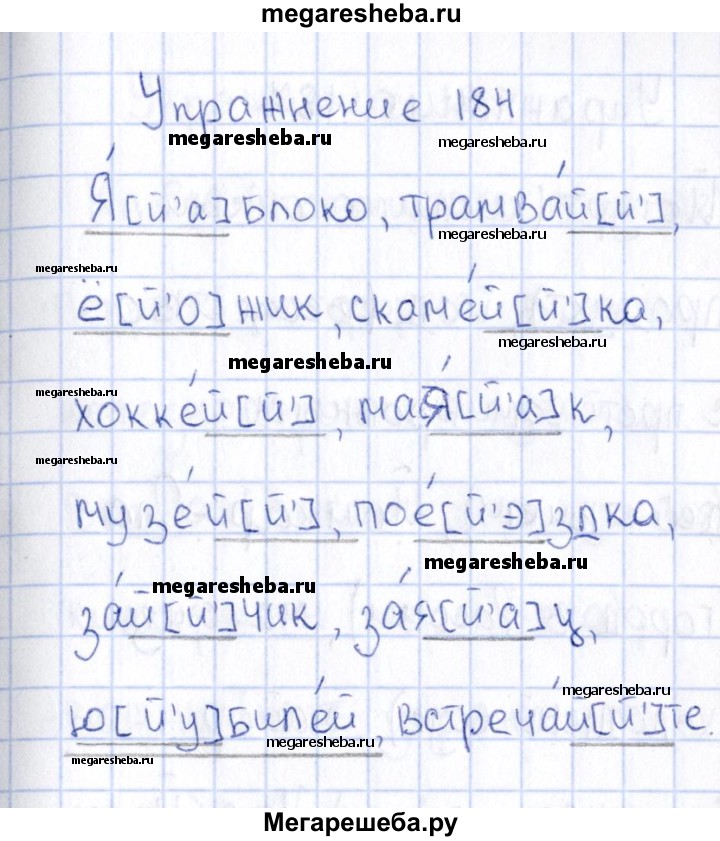 megaresheba.ru
Упражнение 184
megaresheba.ru megaresheba.ru
Я́[й'а]блоко, трамва́й[й'],
megaresheba.ru megaresheba.ru
ё[й'о]жик, скаме́й[й']ка,
megaresheba.ru megaresheba.ru
хокке́й[й'], мая́[й'а]к,
megaresheba.ru
музе́й[й'], пое́[й'э]здка,
megaresheba.ru megaresheba.ru
за́й[й']чик, за́я[й'а]ц,
megaresheba.ru
ю[й'у]биле́й, встреча́й[й']те.
megaresheba.ru megaresheba.ru
Мегарешеба.ру